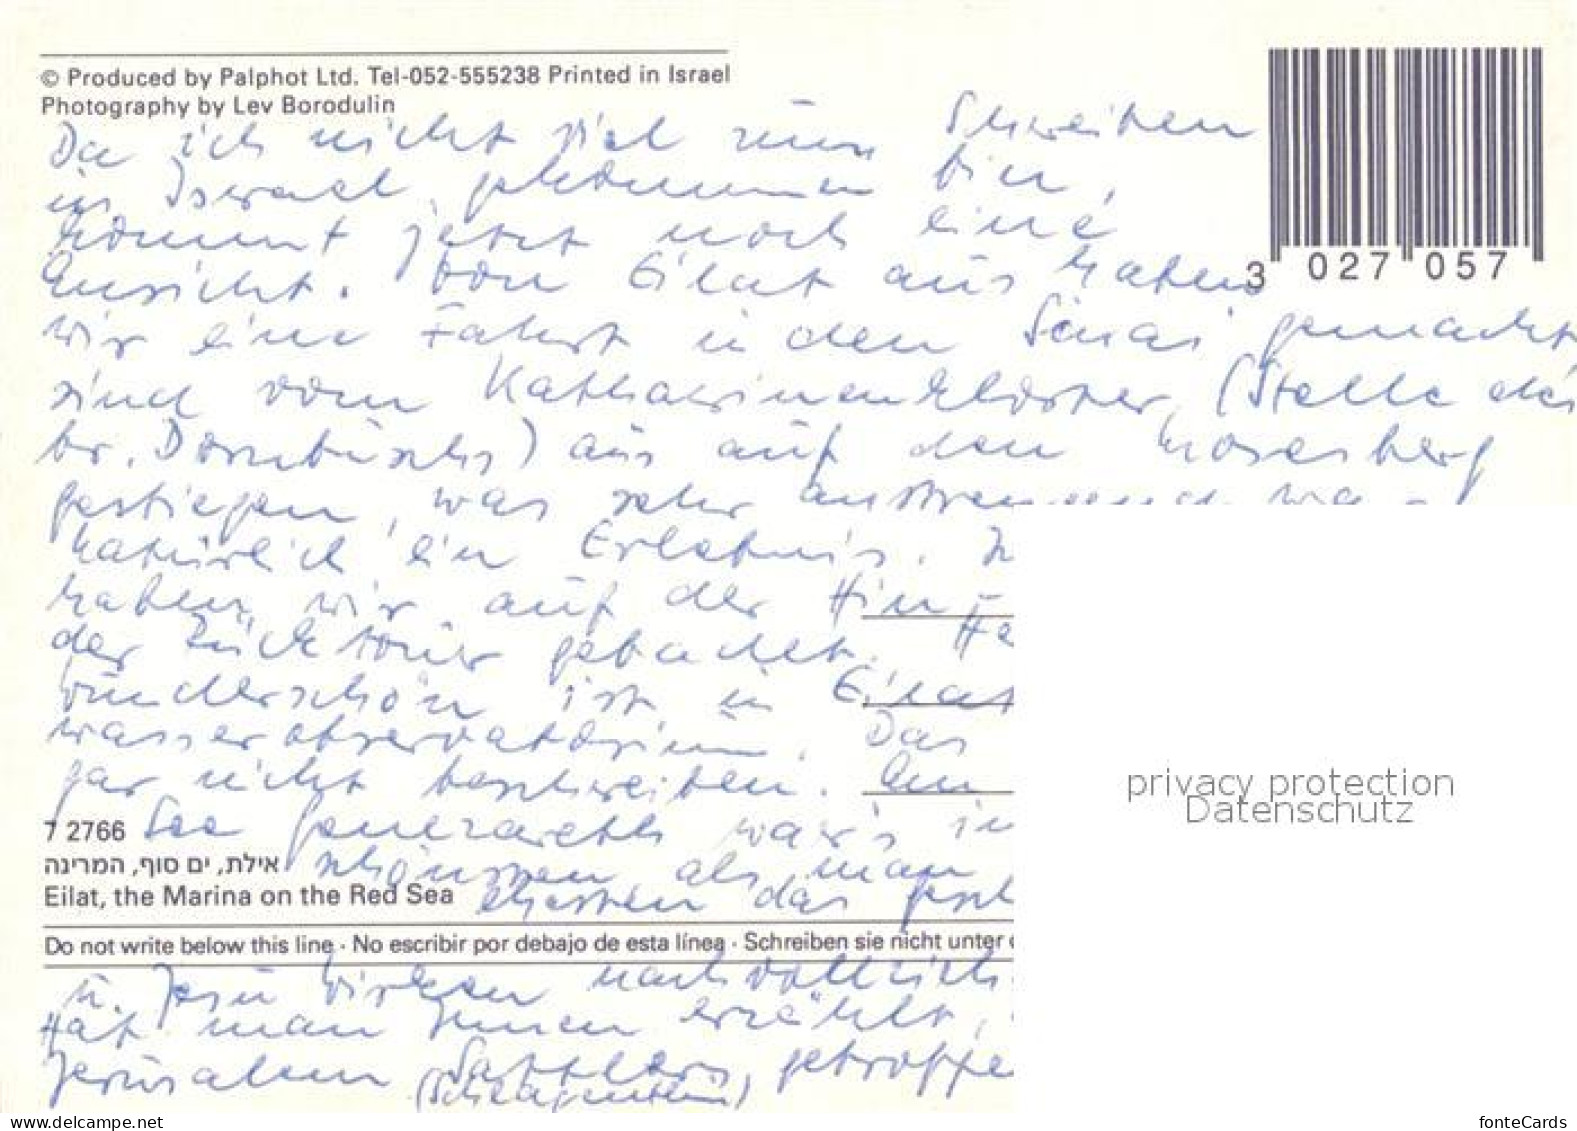 © Produced by Palphot Ltd. Tel-052-555238 Printed in Israel
Photography by Lev Borodulin
3 027 057
Da ich nicht viel zum Schreiben
in Israel gekommen bin,
kommt jetzt noch eine
Ansicht. Von Eilat aus haben
wir eine Fahrt in den Sinai gemacht
sind vom Katharinenkloster (Stelle des
br. Dornbuschs) aus auf den Mosesberg
gestiegen, was sehr anstrengend wa-
natürlich ein Erlebnis.
haben wir auf der Hin-
der Rücktour gebadet. He
wunderschön ist in Eilat
wasserobservatorium. Das
gar nicht beschreiben. Am
See Genezareth war's in
7 2766
אילת, ים סוף, המרינה
schönsten als man
Eilat, the Marina on the Red Sea
ehesten das gesch
Do not write below this line · No escribir por debajo de esta línea · Schreiben sie nicht unter
u. Jesu Wirken nachvollzieh
Hat man Ihnen erzählt,
Jerusalem Sattlers, getroffe
privacy protection
Datenschutz
www.delcampe.net
fonteCards